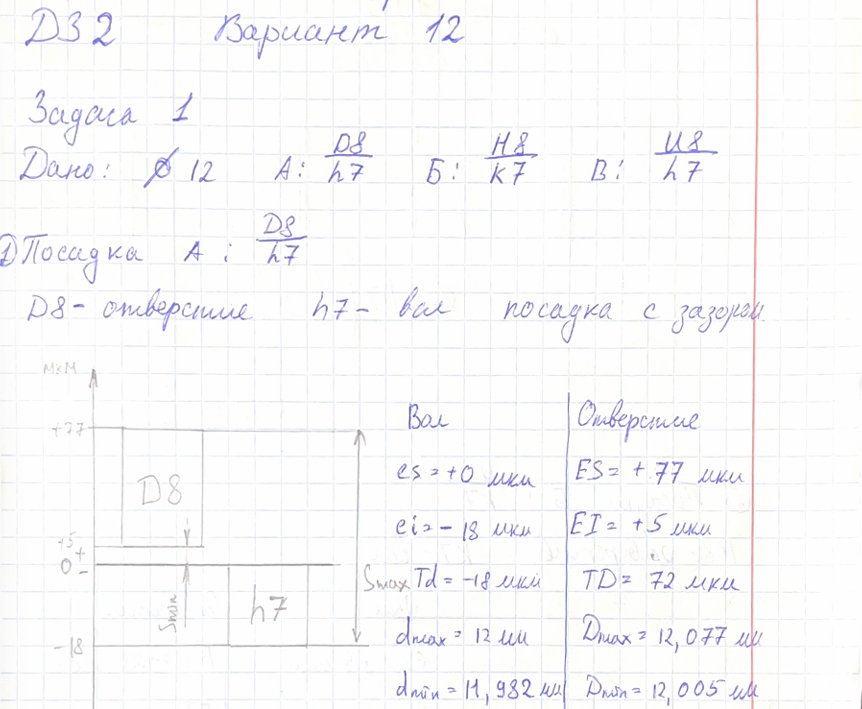 ДЗ 2 Вариант 12
Задача 1
Дано: ⌀ 12 А: D8/h7 Б: H8/k7 В: U8/h7
1) Посадка А: D8/h7
D8 - отверстие h7 - вал посадка с зазором
мкм
+77
D8
+5
+
0
-
Smin
h7
Smax
-18
Вал Отверстие
es = +0 мкм ES = +77 мкм
ei = -18 мкм EI = +5 мкм
Td = -18 мкм TD = 72 мкм
dmax = 12 мм Dmax = 12,077 мм
dmin = 11,982 мм Dmin = 12,005 мм